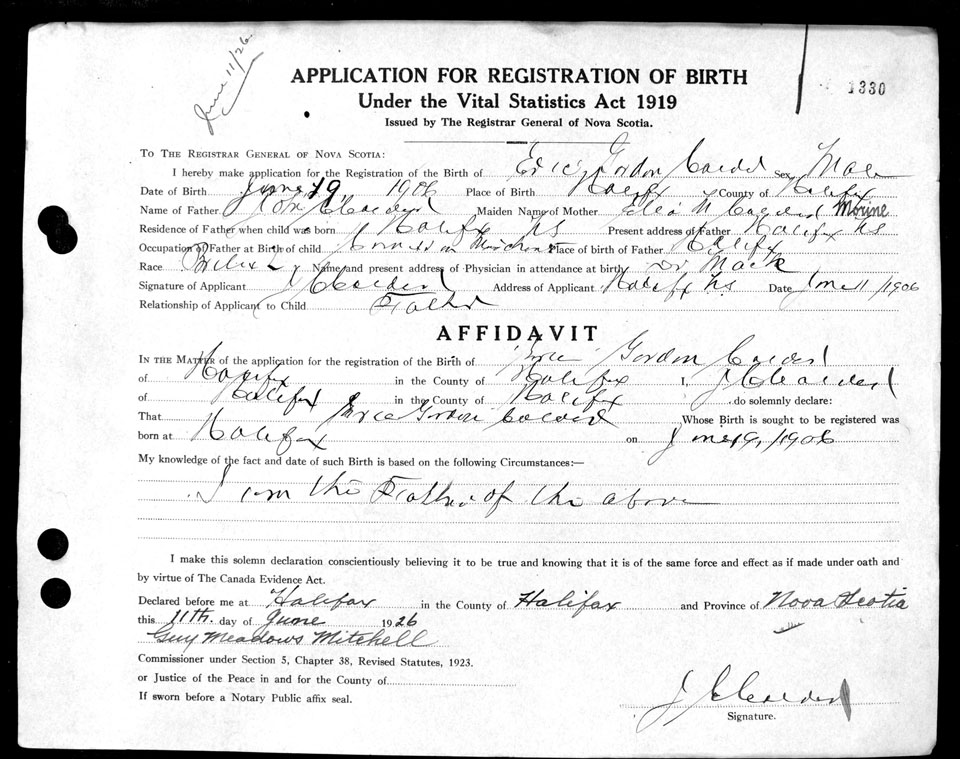 June 11/26.
1330
APPLICATION FOR REGISTRATION OF BIRTH
Under the Vital Statistics Act 1919
Issued by The Registrar General of Nova Scotia.
TO THE REGISTRAR GENERAL OF NOVA SCOTIA:
I hereby make application for the Registration of the Birth of Eric Gordon Sex Male
Date of Birth June 19, 1906 Place of Birth Halifax County of Halifax
Name of Father Maiden Name of Mother Morine
Residence of Father when child was born Halifax NS Present address of Father Halifax NS
Occupation of Father at Birth of child Commission Merchant Place of birth of Father Halifax
Race British Name and present address of Physician in attendance at birth Dr Mack
Signature of Applicant Address of Applicant Halifax NS Date June 11/1906
Relationship of Applicant to Child Father
AFFIDAVIT
IN THE MATTER of the application for the registration of the Birth of Eric Gordon
of Halifax in the County of Halifax I,
of Halifax in the County of Halifax do solemnly declare:
That Eric Gordon Whose Birth is sought to be registered was
born at Halifax on June 19, 1906
My knowledge of the fact and date of such Birth is based on the following Circumstances:—
I am the Father of the above
I make this solemn declaration conscientiously believing it to be true and knowing that it is of the same force and effect as if made under oath and
by virtue of The Canada Evidence Act.
Declared before me at Halifax in the County of Halifax and Province of Nova Scotia
this 11th. day of June 1926
Guy Meadows Mitchell
Commissioner under Section 5, Chapter 38, Revised Statutes, 1923.
or Justice of the Peace in and for the County of
If sworn before a Notary Public affix seal.
Signature.